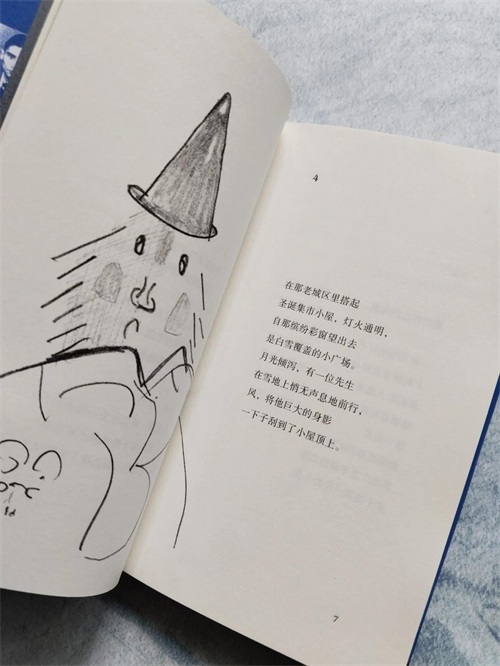 4
在那老城区里搭起
圣诞集市小屋，灯火通明，
自那缤纷彩窗望出去
是白雪覆盖的小广场。
月光倾泻，有一位先生
在雪地上悄无声息地前行，
风，将他巨大的身影
一下子刮到了小屋顶上。
7